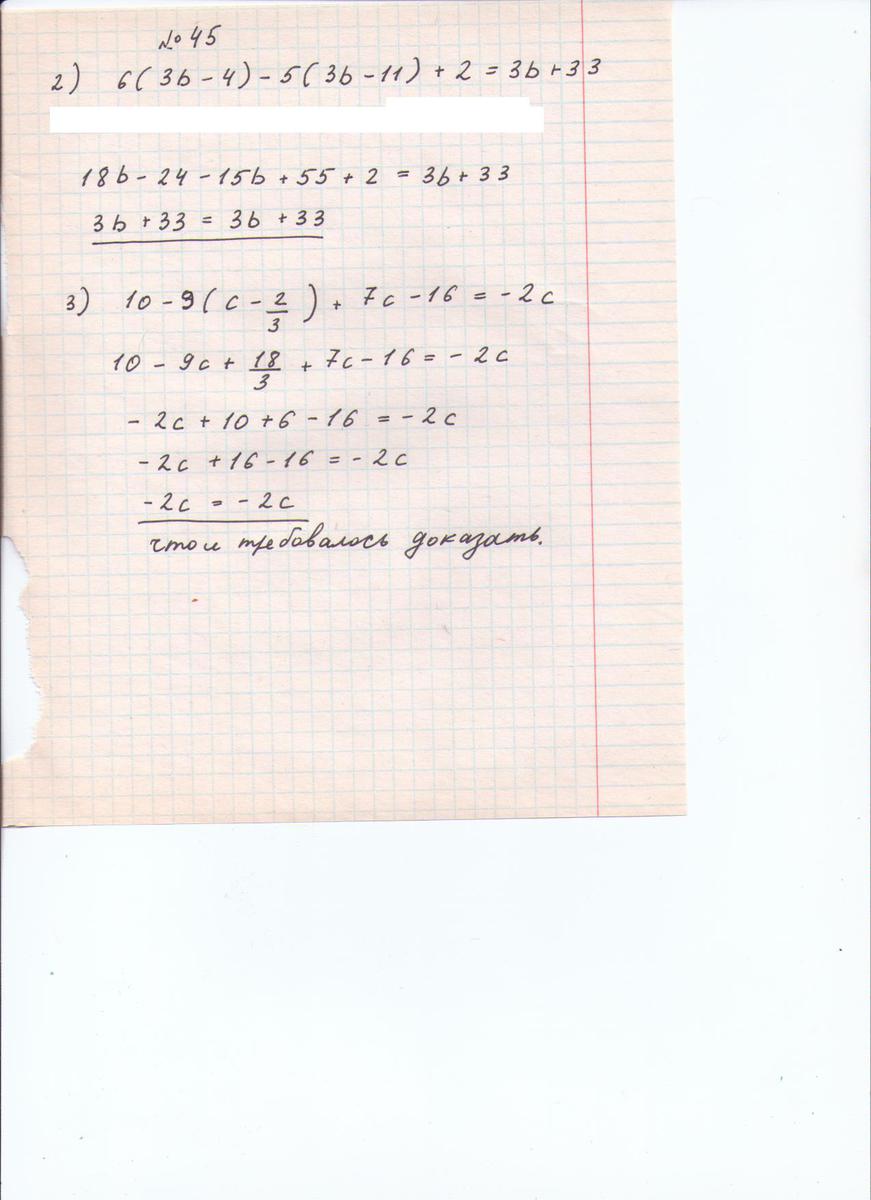 № 45
2) 6(3b - 4) - 5(3b - 11) + 2 = 3b + 33
18b - 24 - 15b + 55 + 2 = 3b + 33
3b + 33 = 3b + 33
3) 10 - 9(c - 2/3) + 7c - 16 = - 2c
10 - 9c + 18/3 + 7c - 16 = - 2c
- 2c + 10 + 6 - 16 = - 2c
- 2c + 16 - 16 = - 2c
- 2c = - 2c
что и требовалось доказать.